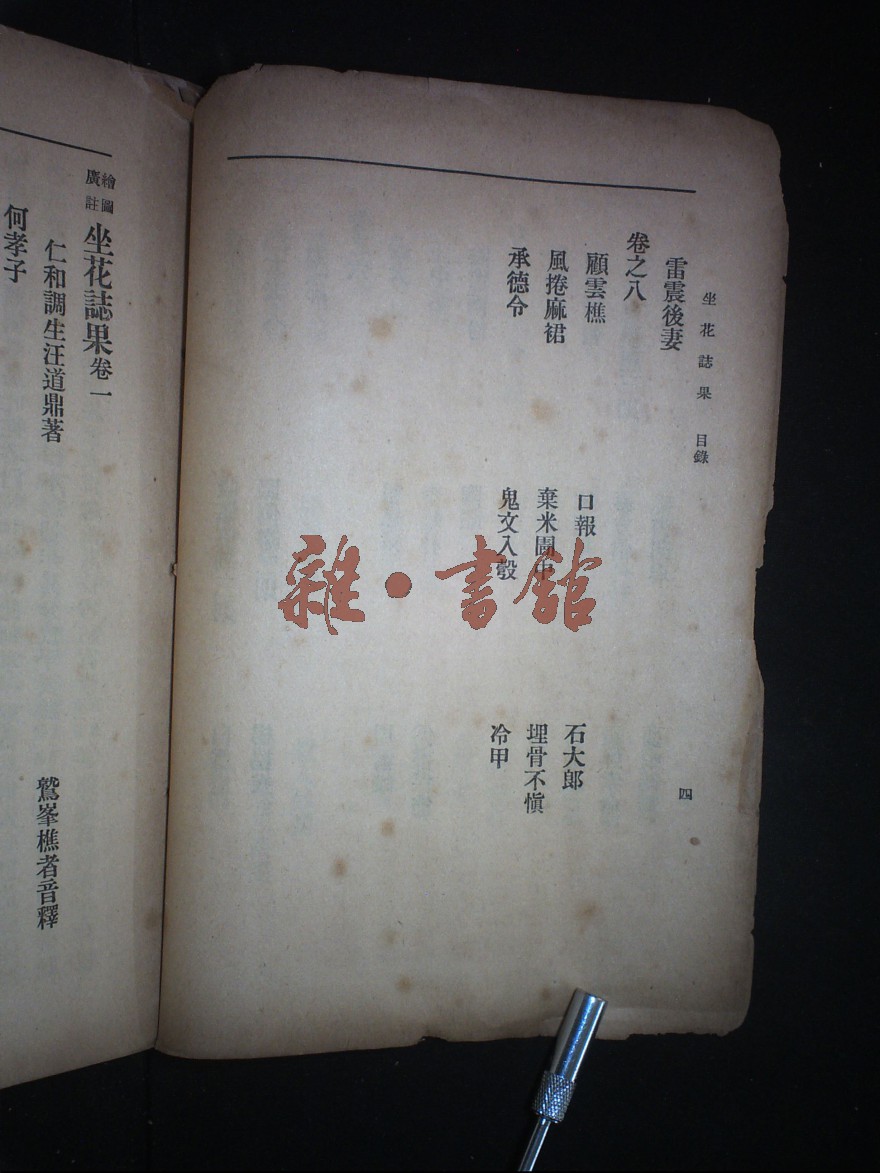 坐花誌果 目錄 四
雷震後妻
卷之八
顧雲樵 口報 石大郎
風捲麻裙 棄米圊中 埋骨不愼
承德令 鬼文入彀 冷甲
繪圖廣註 坐花誌果 卷一
仁和調生汪道鼎著 鷲峯樵者音釋
何孝子
雜·書館